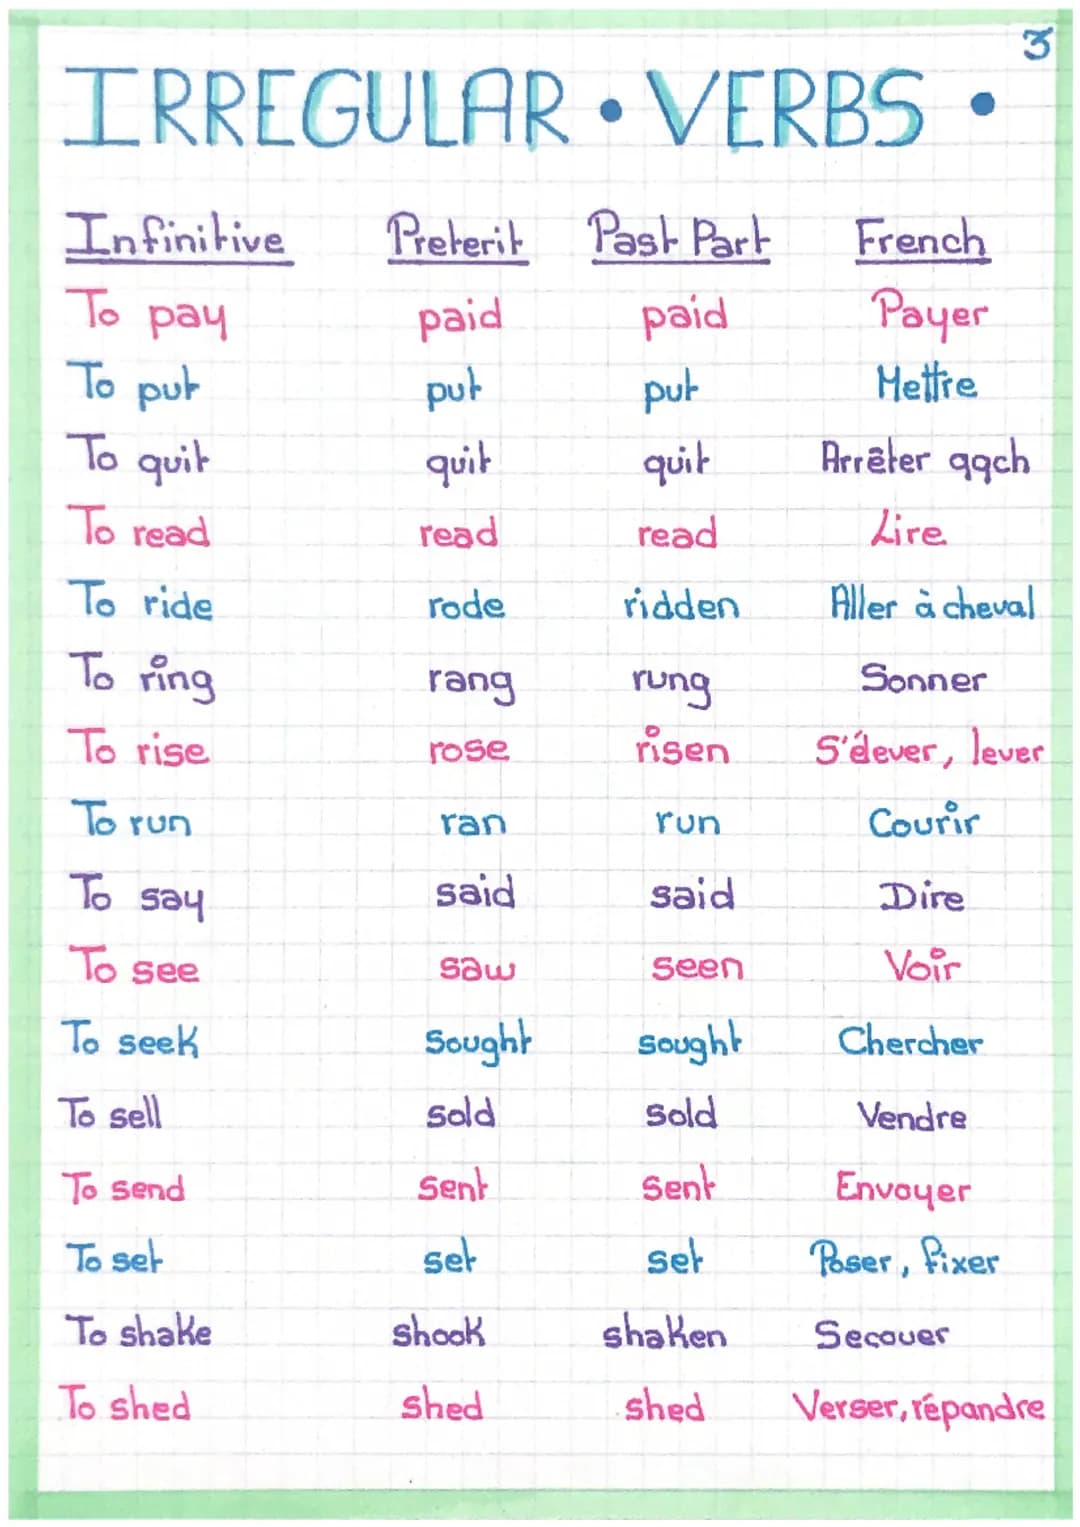 3
IRREGULAR • VERBS •
Infinitive Preterit Past Part French
To pay paid paid Payer
To put put put Mettre
To quit quit quit Arrêter qqch
To read read read Lire
To ride rode ridden Aller à cheval
To ring rang rung Sonner
To rise rose risen S'élever, lever
To run ran run Courir
To say said said Dire
To see saw seen Voir
To seek Sought sought Chercher
To sell sold sold Vendre
To send sent sent Envoyer
To set set set Poser, fixer
To shake shook shaken Secouer
To shed shed shed Verser, répandre